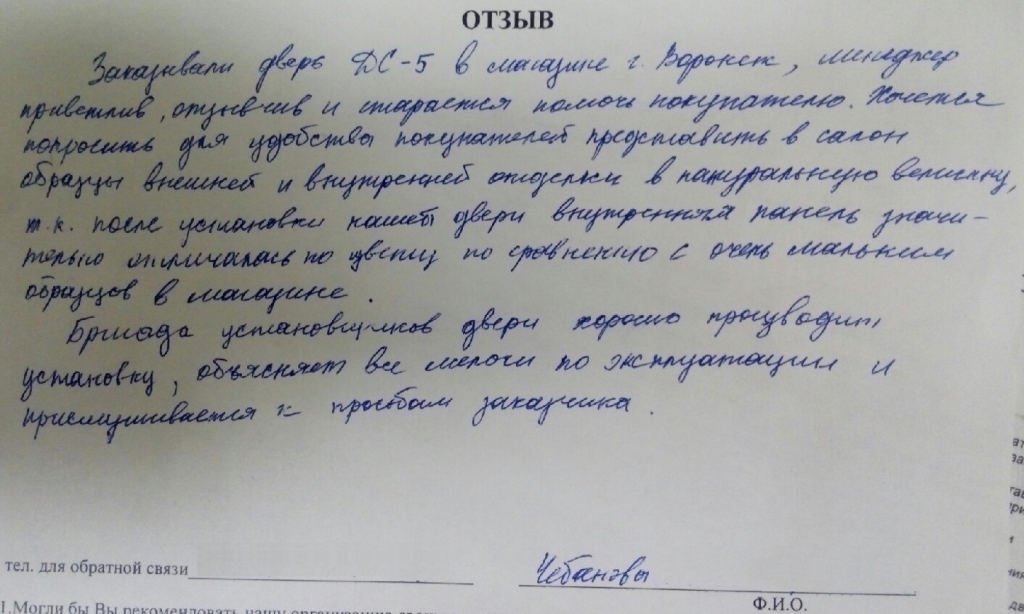 ОТЗЫВ
Заказывали дверь ДС-5 в магазине г. Воронеж, менеджер
приветлив, отзывчив и старается помочь покупателю. Хочется
попросить для удобства покупателей представить в салон
образцы внешней и внутренней отделки в натуральную величину,
т.к. после установки нашей двери внутренняя панель значи-
тельно отличалась по цвету по сравнению с очень маленьким
образцов в магазине.
Бригада установщиков двери хорошо производит
установку, объясняет все мелочи по эксплуатации и
прислушивается к просьбам заказчика.
тел. для обратной связи
Чебановы
Ф.И.О.
1.Могли бы Вы рекомендовать нашу организацию